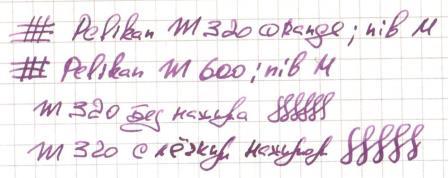 # Pelikan M 320 Orange; nib M
# Pelikan M 600; nib M
M 320 без нажима
M 320 с лёгким нажимом